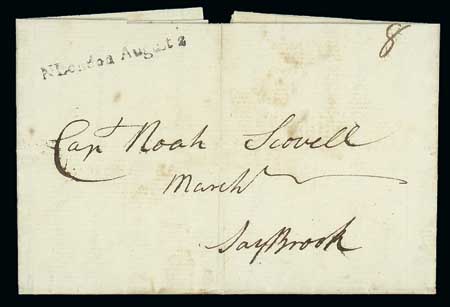 8
N London August 2
Capt Noah Scovell
Marcht
SayBrook